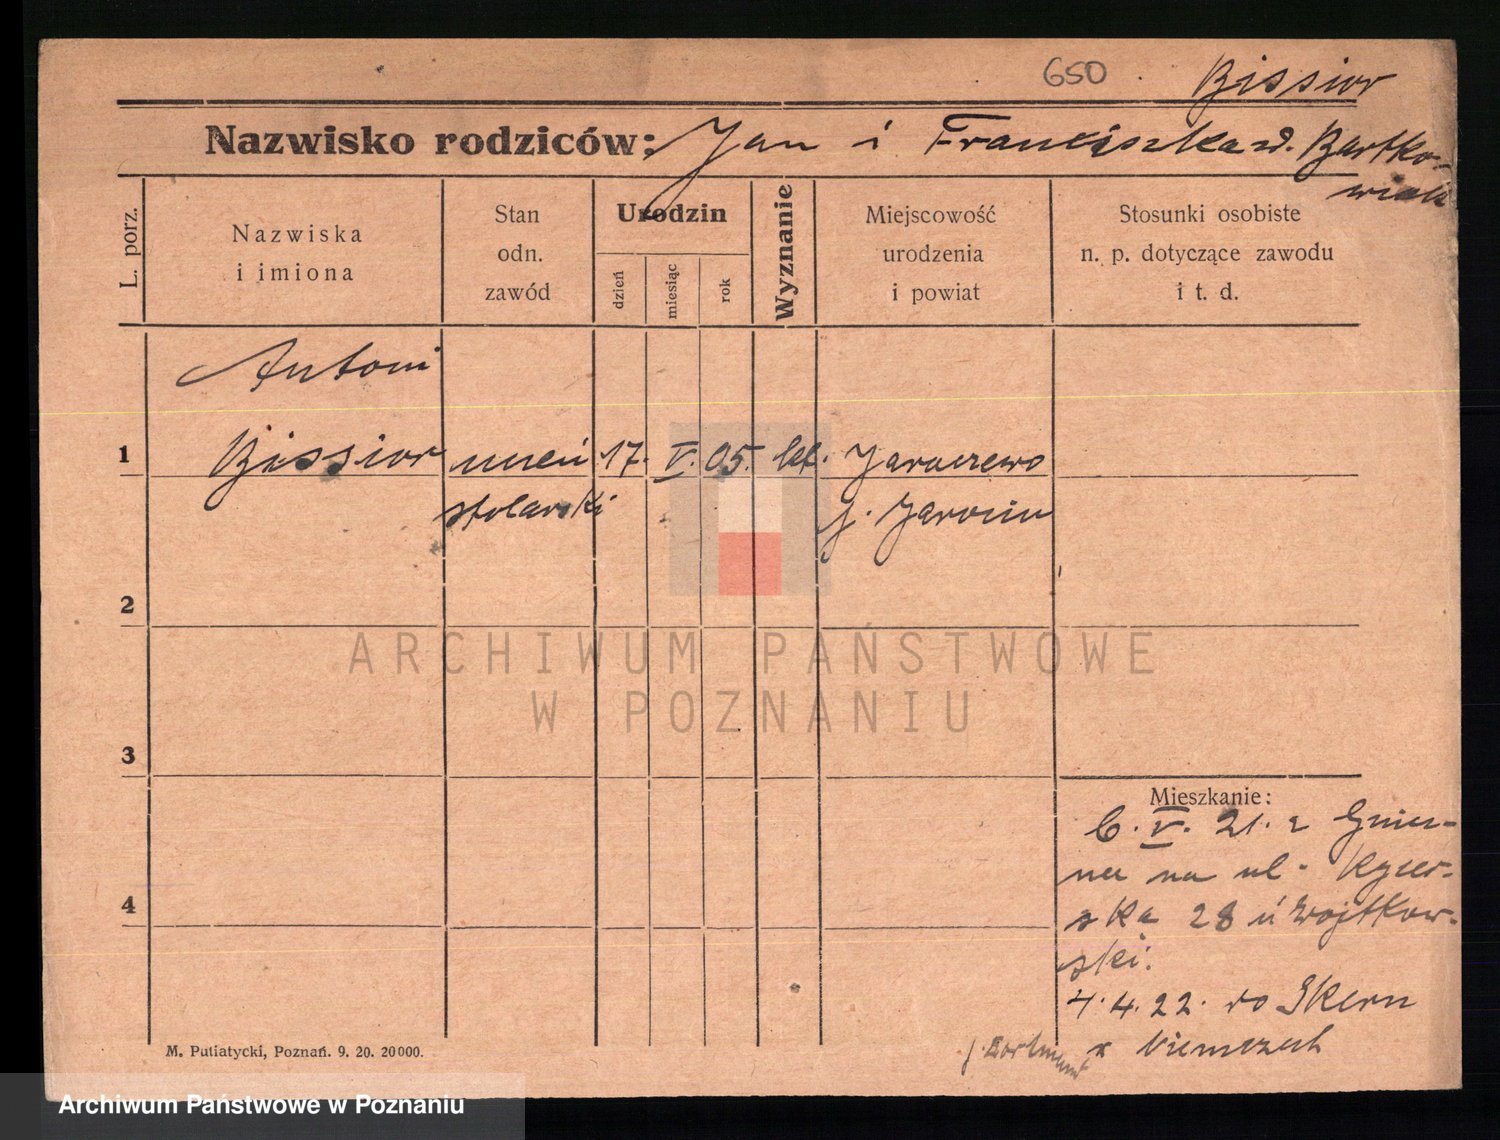 650 . Bissior
Nazwisko rodziców: Jan i Franciszka z d. Bartko-
wiak
L. porz.
Nazwiska
i imiona
Stan
odn.
zawód
Urodzin
dzień
miesiąc
rok
Wyznanie
Miejscowość
urodzenia
i powiat
Stosunki osobiste
n. p. dotyczące zawodu
i t. d.
Antoni
1 Bissior uczeń 17. V. 05. kat. Jaraczewo
stolarski p. Jarocin
2
ARCHIWUM PAŃSTWOWE
W POZNANIU
3
Mieszkanie:
6. V. 21. z Gniez-
na na ul. Rycer-
4
ska 28 u Wojtkow-
ski.
4. 4. 22. do
p. Dortmund w Niemczech
M. Putiatycki, Poznań. 9. 20. 20000.
Archiwum Państwowe w Poznaniu